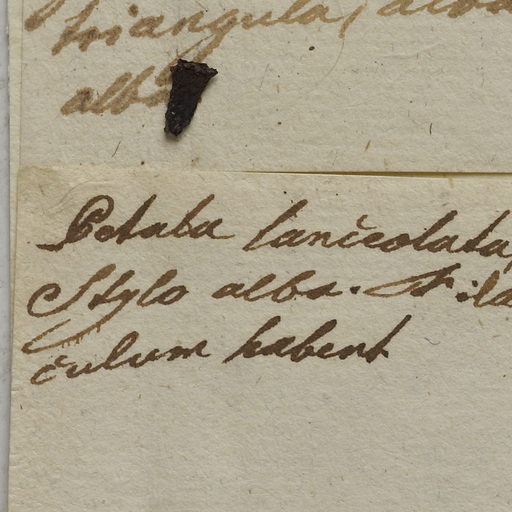 triangula, alba
alba
Petala lanceolata,
Stylo alba. Fila
culum habent